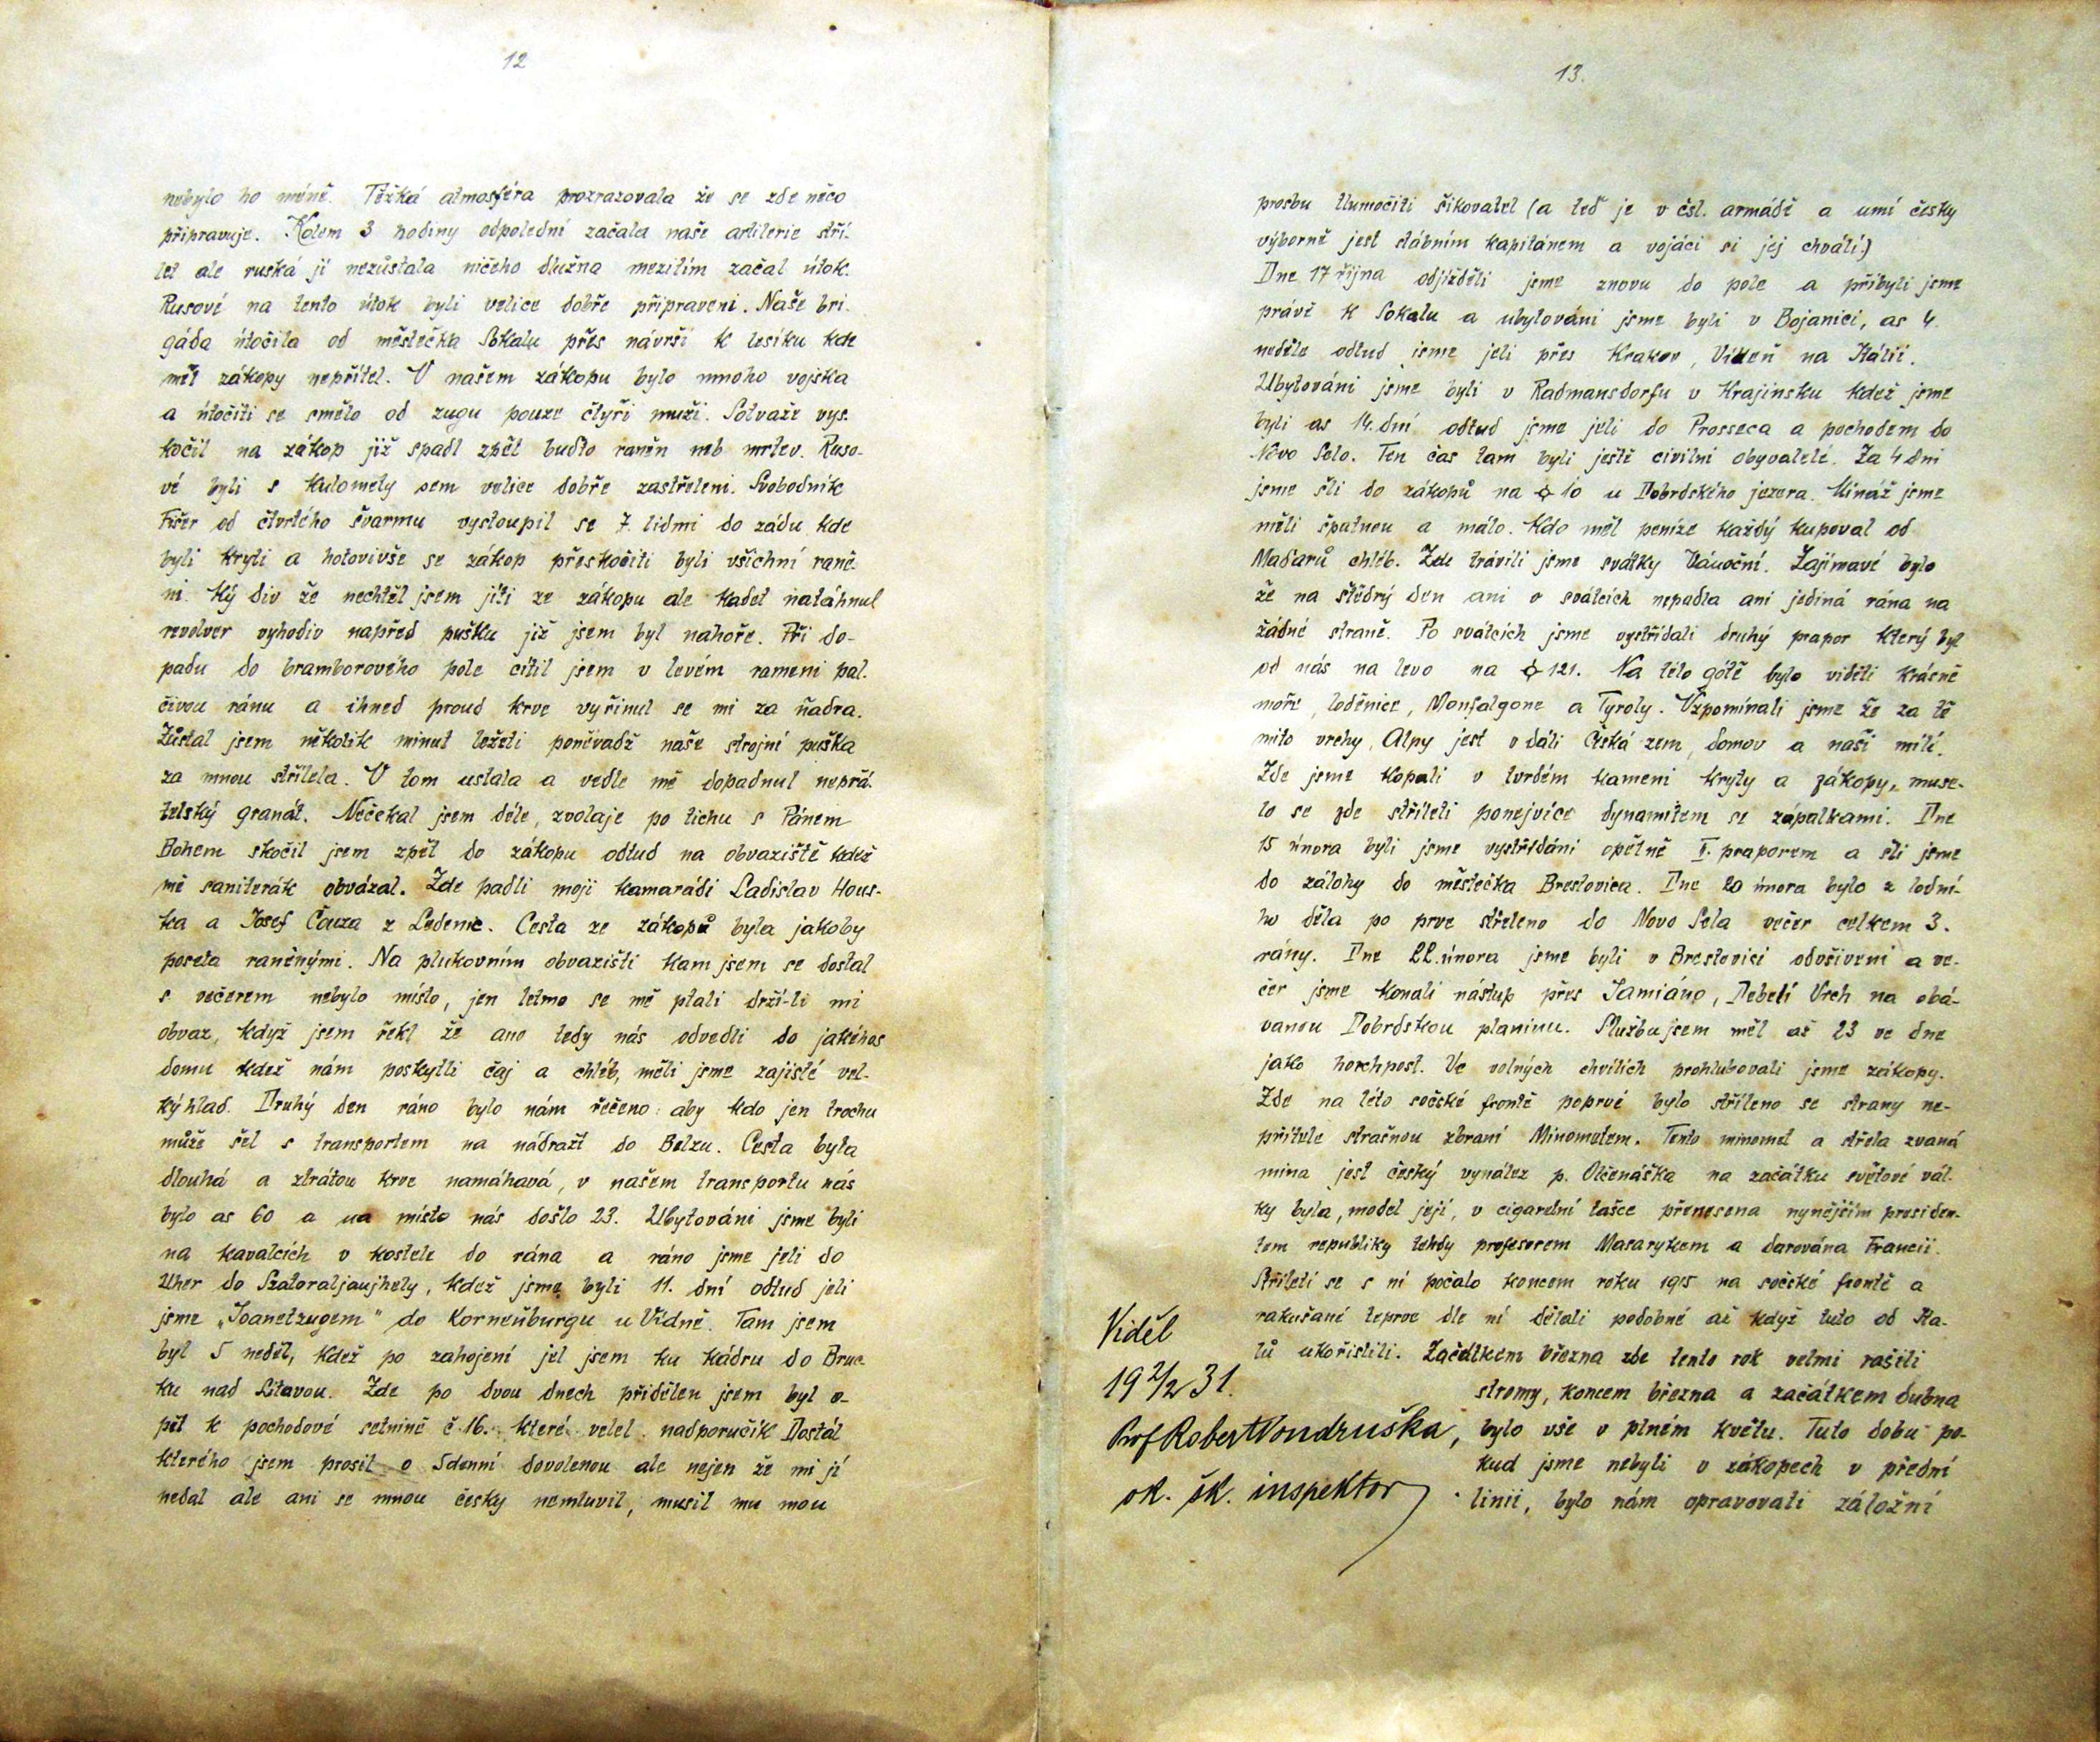 12
nebylo ho méně. Těžká atmosféra prozrazovala že se zde něco
připravuje. Kolem 3 hodiny odpolední začala naše artilerie stří-
let ale ruská jí nezůstala ničeho dlužna mezitím začal útok.
Rusové na tento útok byli velice dobře připraveni. Naše bri-
gáda útočila od městečka Sokalu přes návrší k lesíku kde
měl zákopy nepřítel. V našem zákopu bylo mnoho vojska
a útočiti se smělo od zugu pouze čtyři muži. Sotvaže vys-
kočil na zákop již spadl zpět buďto raněn neb mrtev. Ruso-
vé byli s kulomety sem velice dobře zastřeleni. Svobodník
Fišer od čtvrtého švarmu vystoupil se 7 lidmi do zádu kde
byli kryti a hotovivše se zákop přeskočiti byli všichni raně-
ni. Ký div že nechtěl jsem jíti ze zákopu ale kadet natáhnul
revolver vyhodiv napřed pušku již jsem byl nahoře. Při do-
padu do bramborového pole cítil jsem v levém rameni pal-
čivou ránu a ihned proud krve vyřinul se mi za ňadra.
Zůstal jsem několik minut ležeti poněvadž naše strojní puška
za mnou střílela. V tom ustala a vedle mě dopadnul nepřá-
telský granát. Nečekal jsem déle, zvolaje po tichu s Pánem
Bohem skočil jsem zpět do zákopu odtud na obvaziště kdež
mě saniterák obvázal. Zde padli moji kamarádi Ladislav Hous-
ka a Josef Čauza z Ledenic. Cesta ze zákopů byla jakoby
poseta raněnými. Na plukovním obvazišti kam jsem se dostal
s večerem nebylo místo, jen letmo se mě ptali drží-li mi
obvaz, když jsem řekl že ano tedy nás odvedli do jakéhos
domu kdež nám poskytli čaj a chléb, měli jsme zajisté vel-
ký hlad. Druhý den ráno bylo nám řečeno: aby kdo jen trochu
může šel s transportem na nádraží do Belzu. Cesta byla
dlouhá a ztrátou krve namáhavá, v našem transportu nás
bylo as 60 a na místo nás došlo 23. Ubytováni jsme byli
na kavalcích v kostele do rána a ráno jsme jeli do
Uher do Szatoraljaujhely, kdež jsme byli 11. dní odtud jeli
jsme „Joanetzugem" do Korneuburgu u Vídně. Tam jsem
byl 5 neděl, kdež po zahojení jel jsem ku kádru do Bruc-
ku nad Litavou. Zde po dvou dnech přidělen jsem byl o-
pět k pochodové setnině č. 16. které velel nadporučík Dostál
kterého jsem prosil o 5denní dovolenou ale nejen že mi jí
nedal ale ani se mnou česky nemluvil, musil mu mou
13.
prosbu tlumočiti šikovatel (a teď je v čsl. armádě a umí česky
výborně jest štábním kapitánem a vojáci si jej chválí.)
Dne 17 října odjížděli jsme znovu do pole a přibyli jsme
právě k Sokalu a ubytováni jsme byli v Bojanici, as 4
neděle odtud jsme jeli přes Krakov, Vídeň na Itálii.
Ubytováni jsme byli v Radmansdorfu v Krajinsku kdež jsme
byli as 14. dní odtud jsme jeli do Prosseca a pochodem do
Novo Selo. Ten čas tam byli ještě civilní obyvatelé. Za 4 dni
jsme šli do zákopů na 10 u Dobrdského jezera. Mináž jsme
měli špatnou a málo. Kdo měl peníze každý kupoval od
Maďarů chléb. Zde trávili jsme svátky Vánoční. Zajímavé bylo
že na štědrý den ani o svátcích nepadla ani jediná rána na
žádné straně. Po svátcích jsme vystřídali druhý prapor který byl
od nás na levo na 121. Na této gótě bylo viděti krásně
moře, loděnice, Monfalgone a Tyroly. Vzpomínali jsme že za tě-
mito vrchy, Alpy jest v dáli Česká zem, domov a naši milí.
Zde jsme kopali v tvrdém kameni kryty a zákopy, muse-
lo se zde stříleti ponejvíce dynamitem se zápalkami. Dne
15 února byli jsme vystřídáni opětně I. praporem a šli jsme
do zálohy do městečka Brestovica. Dne 20 února bylo z lodní-
ho děla po prve střeleno do Novo Sela večer celkem 3.
rány. Dne 22. února jsme byli v Brestovici odvšiveni a ve-
čer jsme konali nástup přes Jamiáno, Debelí Vrch na obá-
vanou Dobrdskou planinu. Službu jsem měl až 23 ve dne
jako horchpost. Ve volných chvílích prohlubovali jsme zákopy.
Zde na této sočské frontě poprvé bylo stříleno se strany ne-
přítele strašnou zbraní Minometem. Tento minomet a střela zvaná
mina jest český vynález p. Otčenáška na začátku světové vál-
ky byla, model její, v cigaretní tašce přenesena nynějším presiden-
tem republiky tehdy profesorem Masarykem a darována Francii.
Stříleti se s ní počalo koncem roku 1915 na sočské frontě a
rakušané teprve dle ní dělali podobné až když tuto od Ita-
lů ukořistili. Začátkem března zde tento rok velmi rašili
stromy, koncem března a začátkem dubna
bylo vše v plném květu. Tuto dobu po-
kud jsme nebyli v zákopech v přední
linii, bylo nám opravovati záložní
Viděl
19 2/2 31.
Prof Robert Vondruška,
ok. šk. inspektor